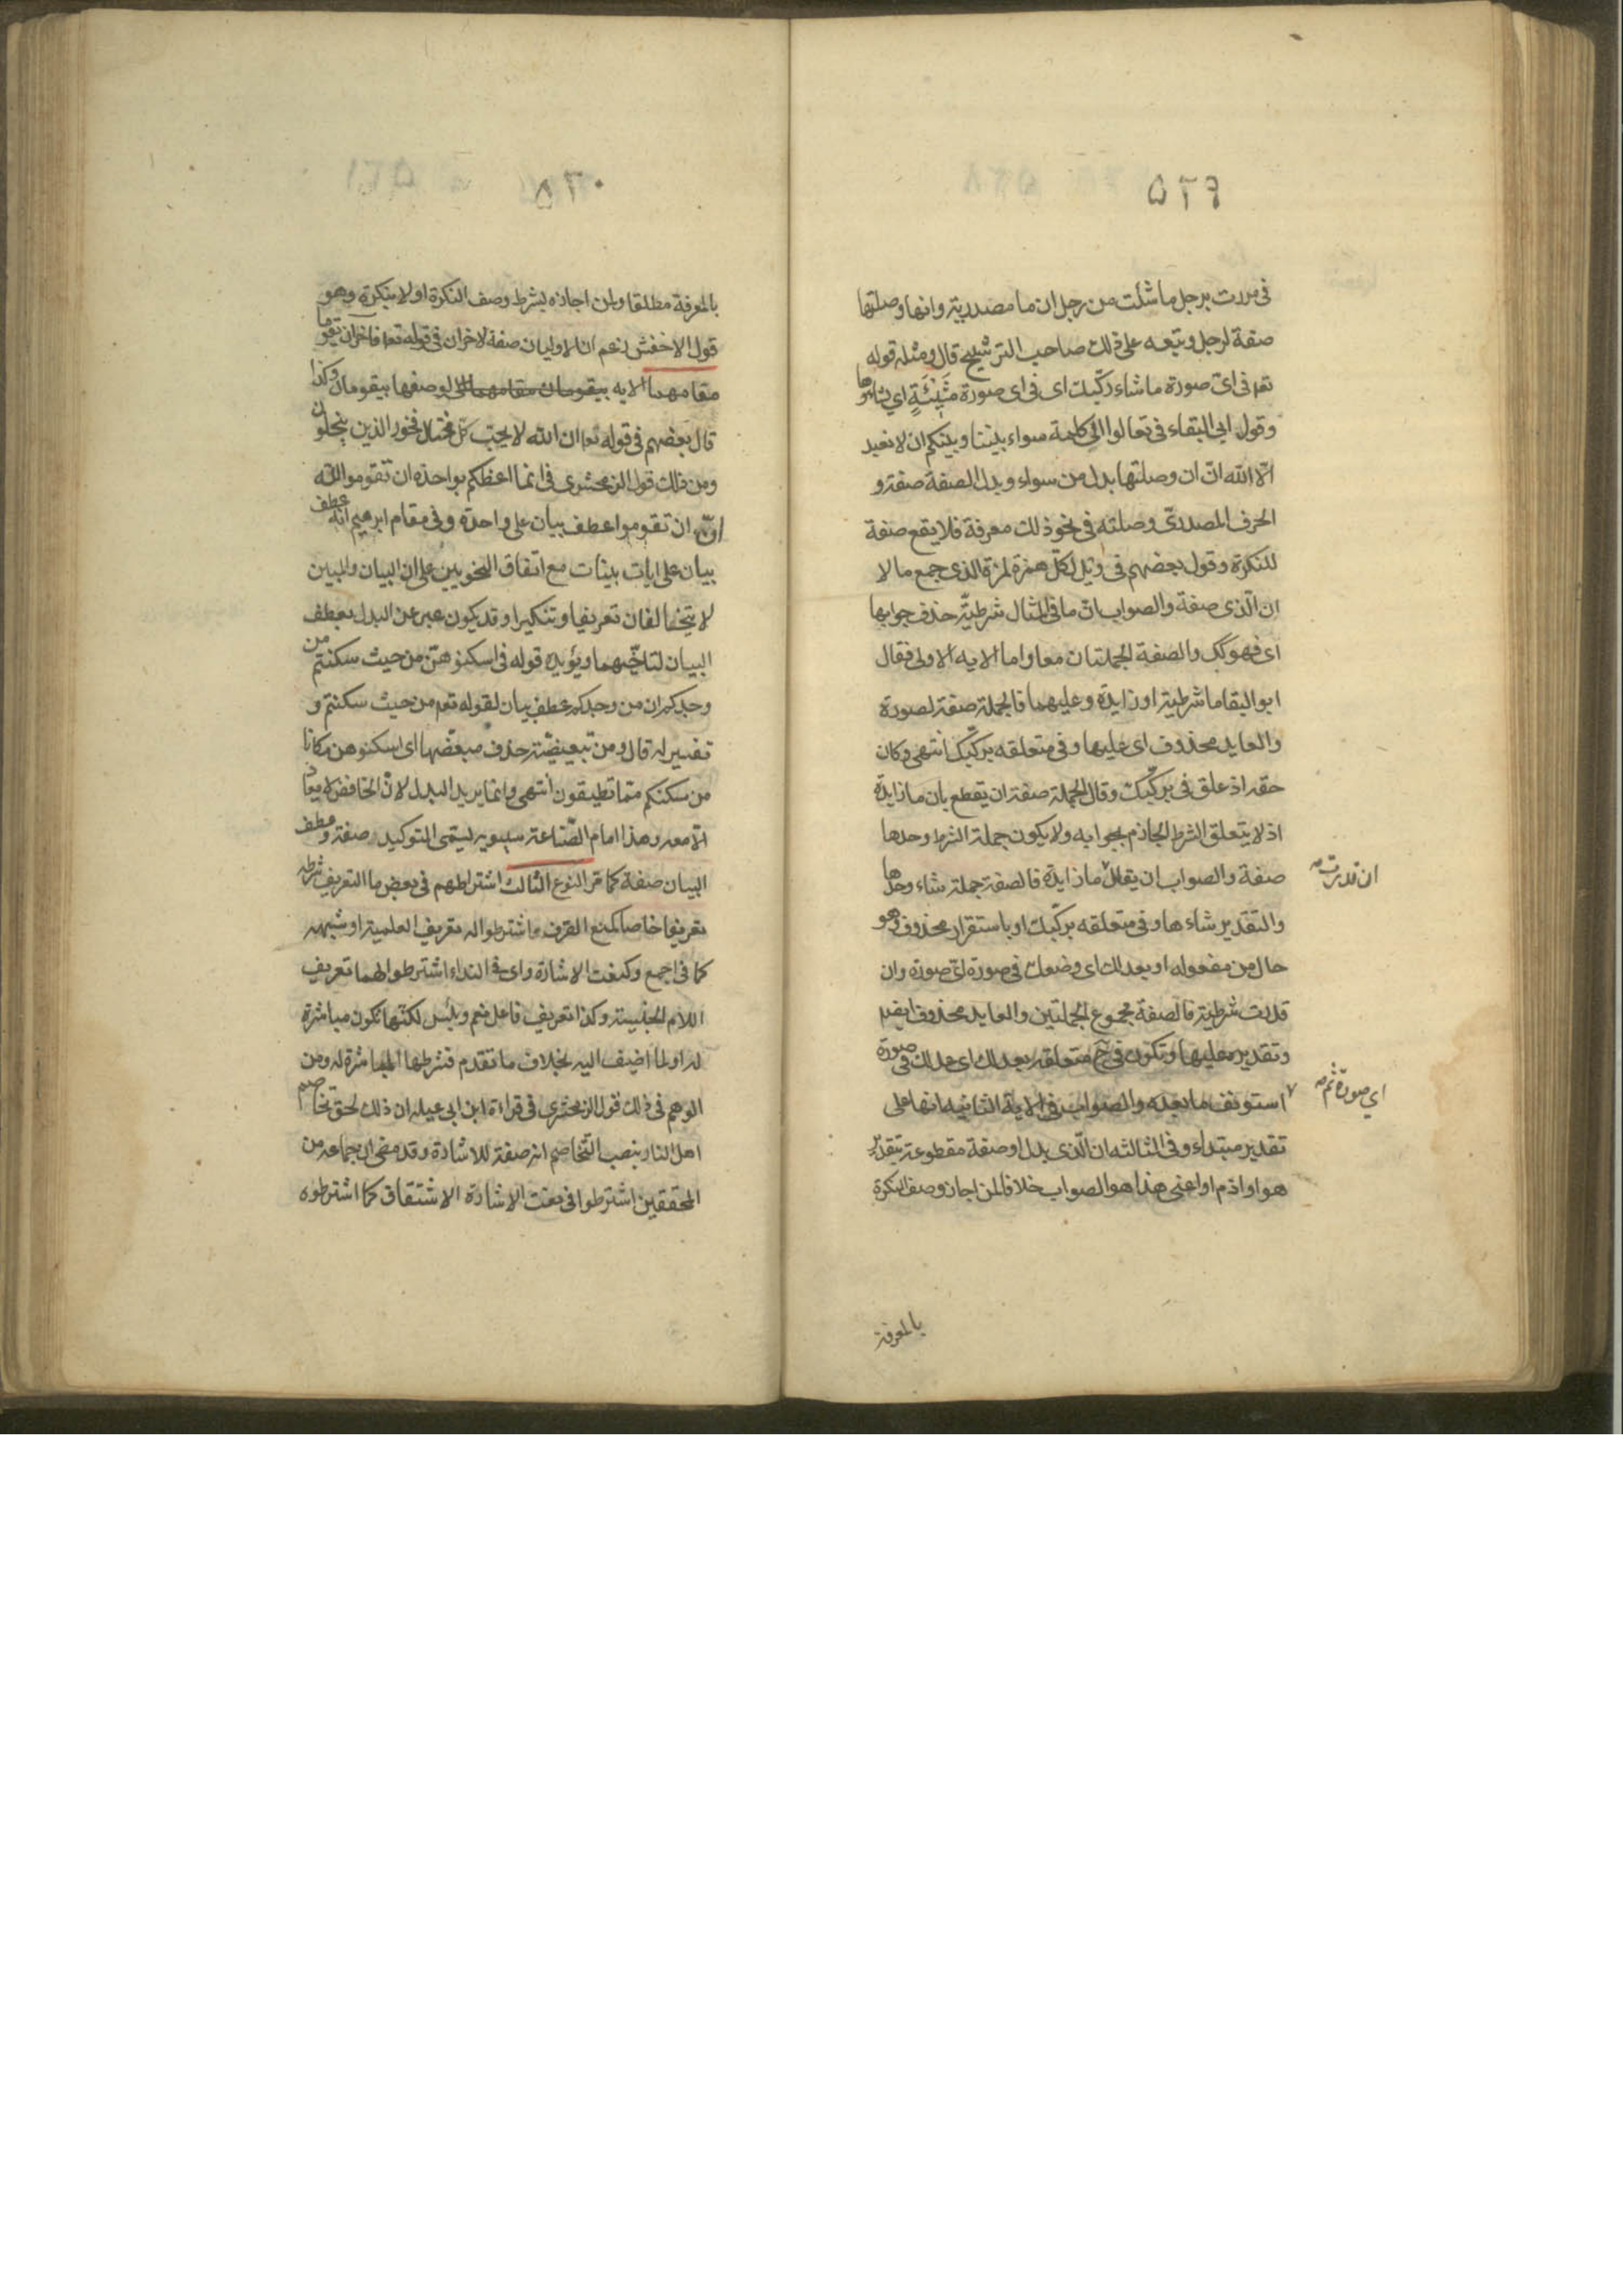 ٥٢٩
فى مررت برجل ما شئت من رجل ان ما مصدرية وانها وصلتها
صفة لرجل وتبعه على ذلك صاحب الترشيح قال ومثله قوله
تعم فى اىّ صورة ما شاء ركّبك اى فى اى صورة مَشِيْئَةٍ اى يشاؤها
وقول ابى البقاء فى تعالوا الى كلمة سواء بيننا وبينكم ان لا نعبد
الّا الله انّ ان وصلتها بدل من سواء وبدل الصفة صفة و
الحرف المصدرىّ وصلته فى نحو ذلك معرفة فلا يقع صفة
للنكرة وقول بعضهم فى ويل لكلّ همزة لمزة الذى جمع مالا
ان الّذى صفة والصواب انّ ما فى المثال شرطيّة حذف جوابها
اى فهو كك والصفة الجملتان معا واما الايه الاولى فقال
ابو البقا ما شرطية او زايدة وعليهما فالجملة صفة لصورة
والعايد محذوف اى عليها وفى متعلقه بركّبك انتهى وكان
حقه اذ علق فى بركّبك وقال الجملة صفة ان يقطع بان ما زايدة
اذ لا يتعلق الشرط الجازم بجوابه ولا يكون جملة الشرط وحدها
صفة والصواب ان يقال ما زايدة فالصفة جملة شاء وحدها
ان قدرت
والتقدير شاءها وفى متعلقه بركّبك او باستقرار محذوف وهو
حال من مفعوله او بعدلك اى وضعك فى صورة اىّ صورة وان
قدرت شرطية فالصفة مجموع الجملتين والعايد محذوف ايضا
وتقديره عليها وتكون فى ح متعلقه بعدلك اى عدلك فى صورة
اي صورة ثم
استونف ما بعده والصواب فى الاية الثانيه انها على
تقدير مبتداء وفى الثالثه ان الّذى بدل او صفة مقطوعة بتقدير
هو او اذم او اعنى هذا هو الصواب خلافا لمن اجاز وصف النكرة
بالمعرفة
٥٣٠
بالمعرفة مطلقا ولمن اجازه بشرط وصف النكرة اولا بنكرة وهو
قول الاخفش زعم ان الاوليان صفة لاخران فى قوله تعا فاخران يقوما
مقامهما الايه بيقومان مقامهما لوصفها بيقومان وكذا
قال بعضهم فى قوله تعا ان الله لا يحبّ كلّ مختال فخور الذين يبخلون
ومن ذلك قول الزمخشرى فى انما اعظكم بواحدة ان تقوموا لله
انّ ان تقوموا عطف بيان على واحدة وفى مقام ابرهيم انه عطف
بيان على ايات بينات مع اتفاق النحويين على ان البيان والمبين
لا يتخالفان تعريفا وتنكيرا وقد يكون عبر عن البدل بعطف
البيان لتاخّيهما ويؤيده قوله فى اسكنوهنّ من حيث سكنتم من
وجدكم ان من وجدكم عطف بيان لقوله تعم من حيث سكنتم و
تفسير له قال ومن تبعيضيّة حذف مبعّضها اى اسكنوهن مكانا
من سكنكم ممّا تطيقون انتهى وانما يريد البدل لانّ الخافض لا يعاد
الّا معه وهذا امام الصّناعة سيبويه يسمّى التوكيد صفة وعطف
البيان صفة كما مرّ النوع الثالث اشتراطهم فى بعض ما التعريف شرطه
تعريفا خاصا كمنع الصّرف ما اشترطوا له تعريف العلمية او شبهه
كما فى اجمع وكنعت الاشارة واى فى النداء اشترطوا لهما تعريف
اللام الجنسية وكذا تعريف فاعل نعم وبئس لكنّها تكون مباشرة
له او لما اضيف اليه بخلاف ما تقدم فشرطها المباشرة له ومن
الوهم فى ذلك قول الزمخشرى فى قراءة ابن ابى عبله ان ذلك لحق تخاصم
اهل النار بنصب التّخاصم انه صفة للاشارة وقد مضى ان جماعه من
المحققين اشترطوا فى نعت الاشارة الاشتقاق كما اشترطوه